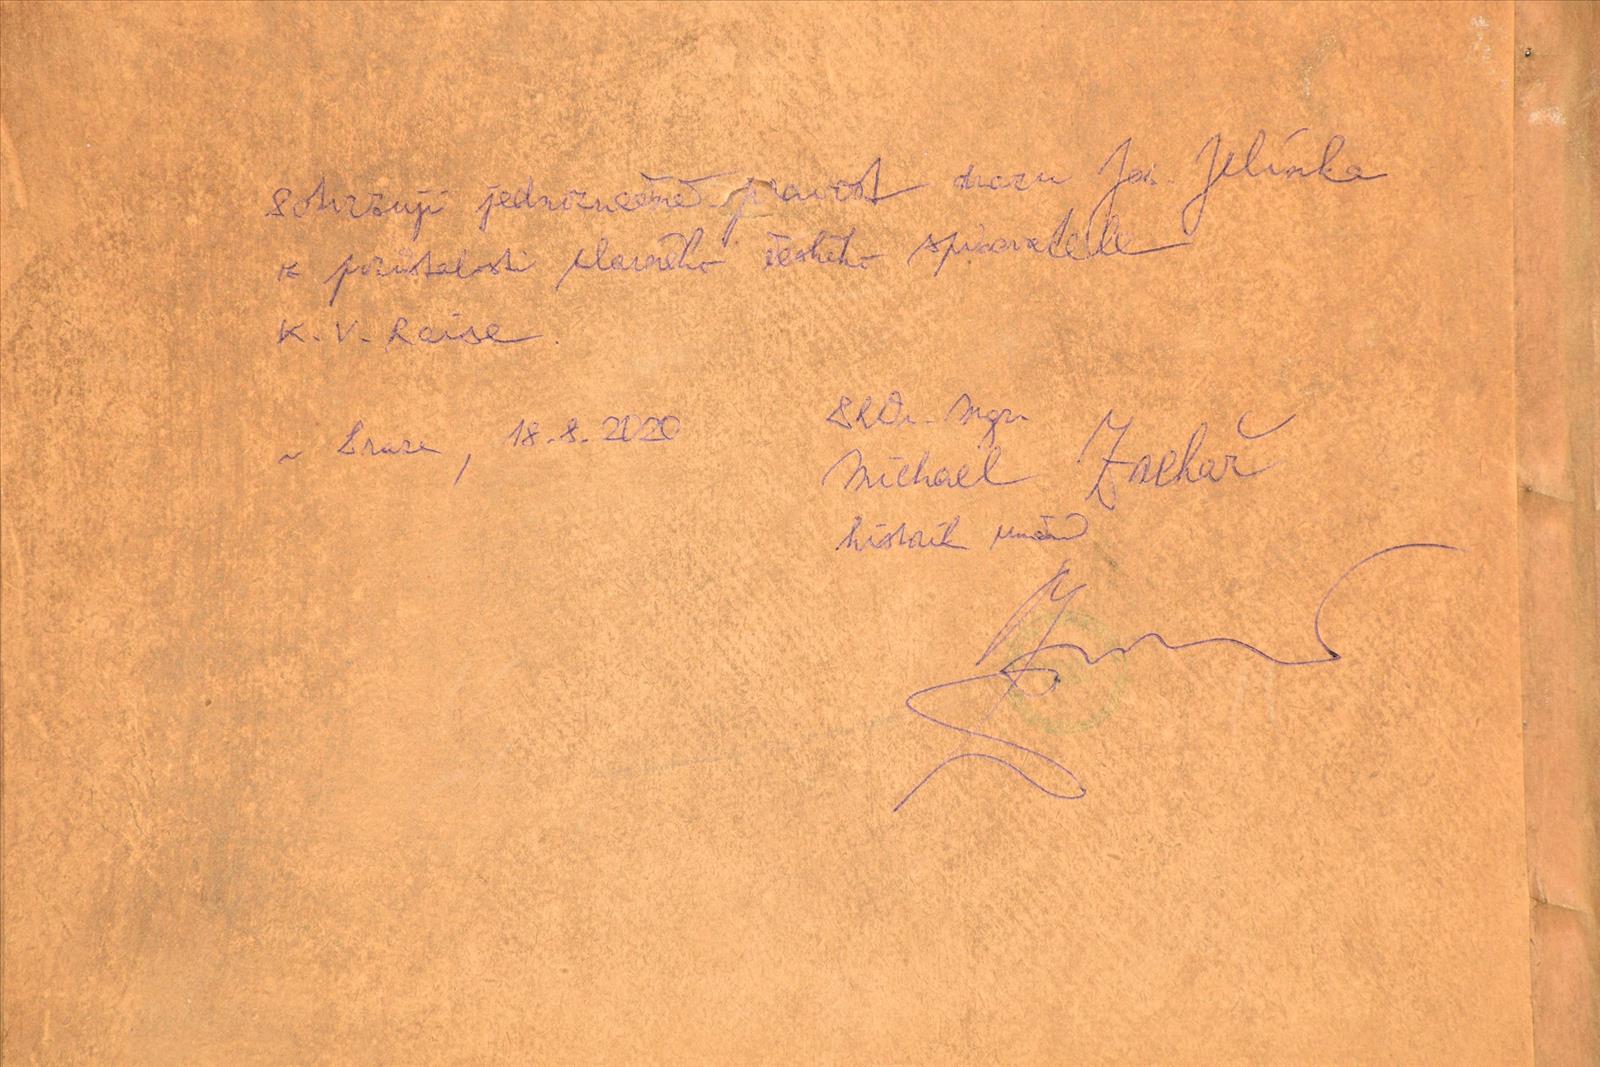 Potvrzuji jednoznačně pravost obrazu Jos. Jelínka
z pozůstalosti slavného českého spisovatele
K. V. Raise.
V Praze, 18. 8. 2020
PhDr. Mgr.
Michael Zachař
historik umění